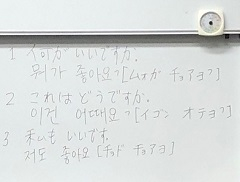 1 何がいいですか。
뭐가 좋아요? [ムォガ チョアヨ?]
2 これはどうですか。
이건 어때요? [イゴン オテヨ?]
3 私もいいです。
저도 좋아요 [チョド チョアヨ]